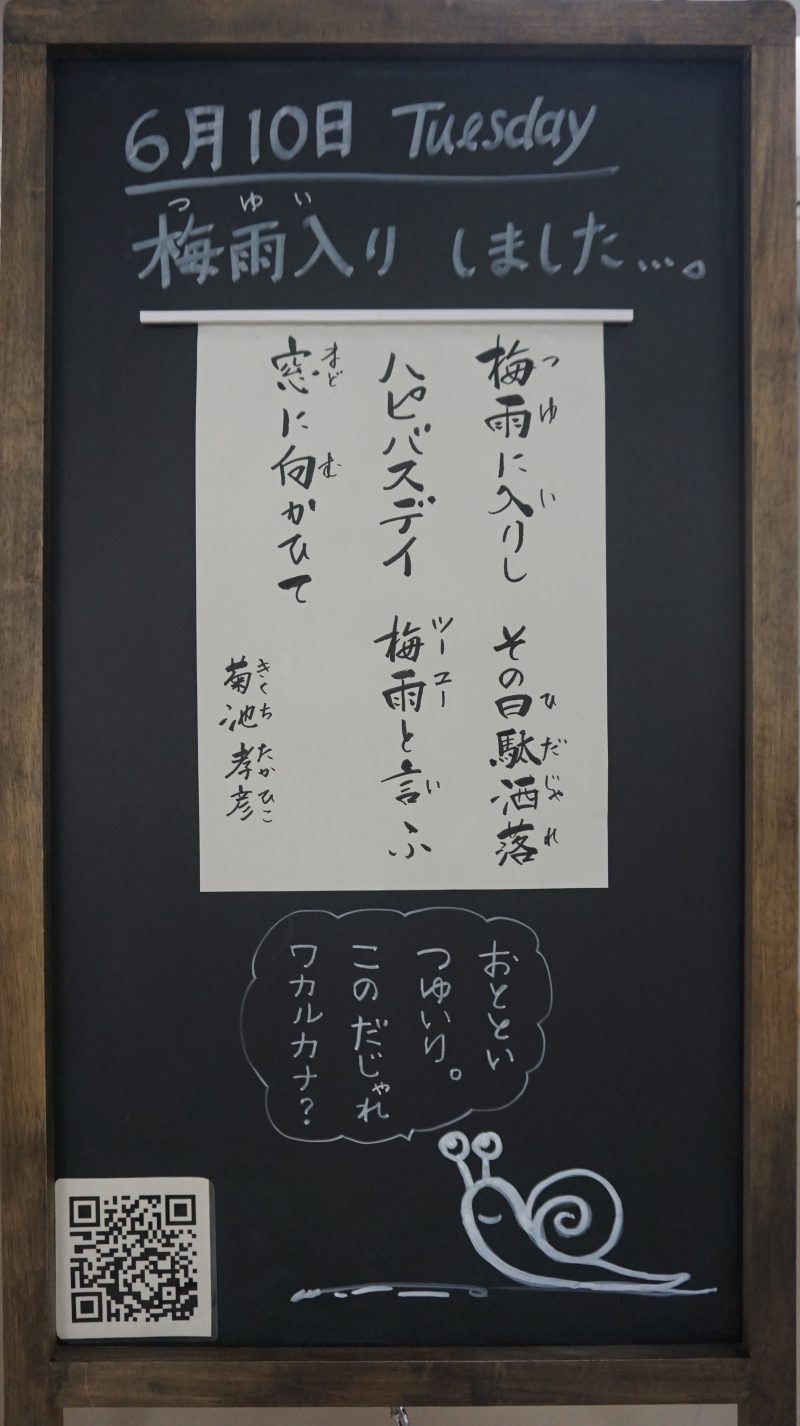 6月10日 Tuesday
つゆい
梅雨入りしました…。
梅雨に入りし その日駄洒落
つゆ い ひだじゃれ
ハピバスデイ 梅雨と言ふ
ツーユー い
窓に向かひて
まど む
菊池孝彦
きくちたかひこ
おととい
つゆいり。
このだじゃれ
ワカルカナ?